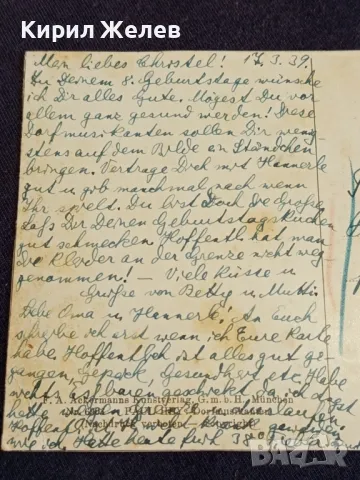 Кирил Желев
Mein liebes Christel! 17.3.39.
Zu Deinem 8. Geburtstage wünsche
ich Dir alles Gute. Mögest Du vor
allem ganz gesund werden! Diese
Dorfmusikanten sollen Dir wenig
stens auf dem Bilde ein Ständchen
bringen. Vertrage Dich mit Hannerle
gut u. gib manchmal nach wenn
Ihr spielt. Du bist doch die Große
laß Dir Deinen Geburtstagskuchen
gut schmecken. Hoffentl. hat man
die Kleider an der Grenze nicht weg
genommen! – Viele Küsse u
Grüße von Betty u. Mutti
Liebe Oma u. Hannerle! An Euch
schreibe ich erst wenn ich Eure Karte
habe. Hoffentlich ist alles gut ge
gangen, Gepäck, Gesundheit etc. Habe
nichts geschickt da ich Angst
hatte
F. A. Ackermanns Kunstverlag, G. m. b. H., München
Dorfmusikanten
Nachdruck verboten – Copyright
Hoffentl.
wie ich. Hatte heute früh 38
bazar.bg